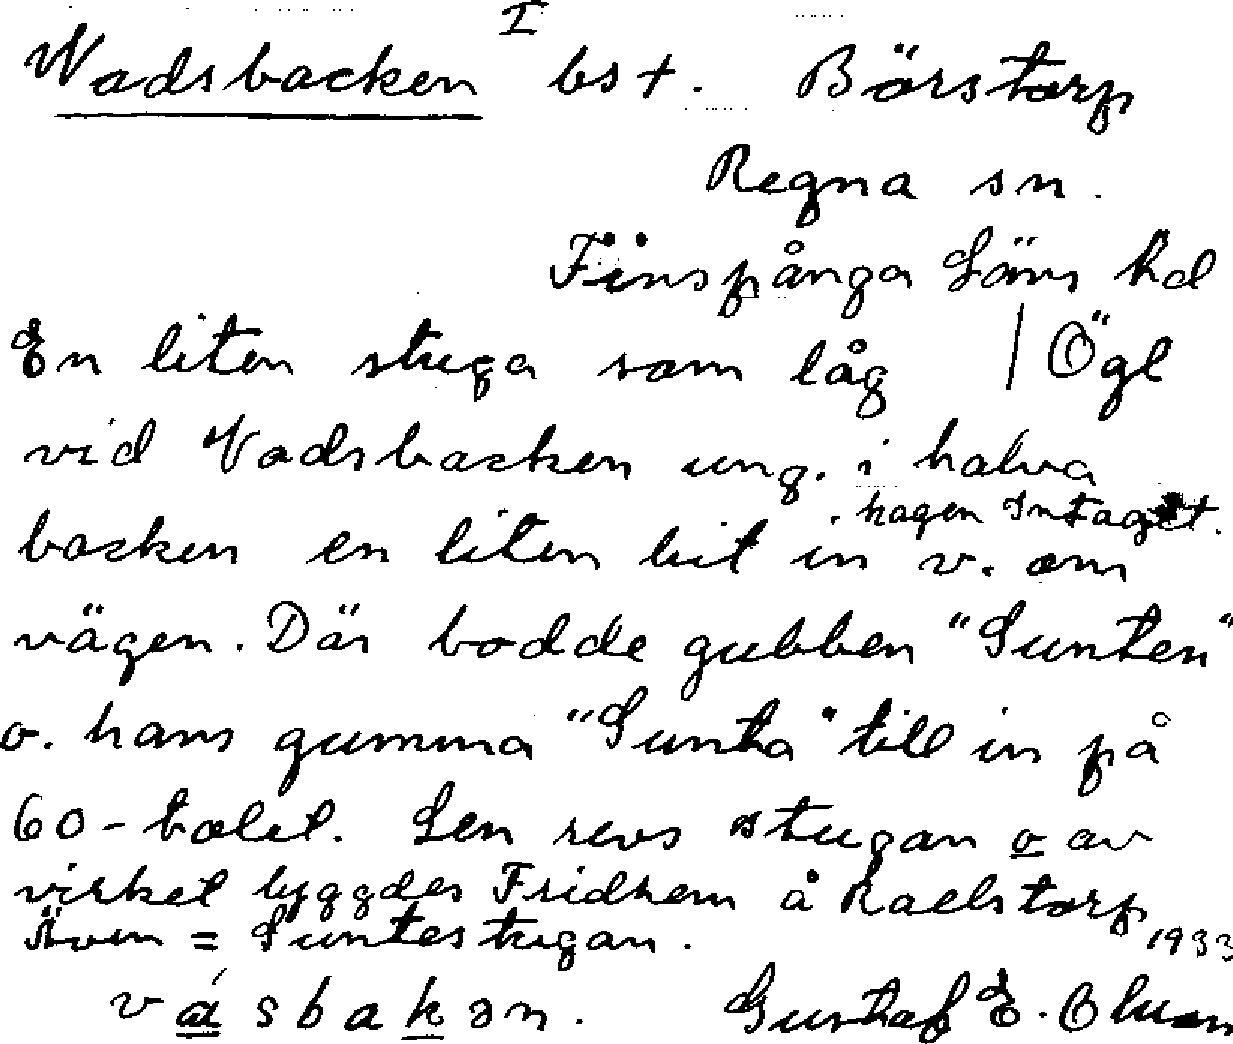 Wadsbacken I bst. Börstorp
Regna sn.
Finspånga Läns hd
En liten stuga som låg | Ögl
vid Vadsbacken ung. i halva
. hagen Intaget.
backen en liten bit in v. om
vägen. Där bodde gubben "Sunten"
o. hans gumma "Sunta" till in på
60-talet. Sen revs stugan o av
virket byggdes Fridhem å Raelstorp
Även = Suntestugan. 1933
vásbakən. Gustaf E. Olsson